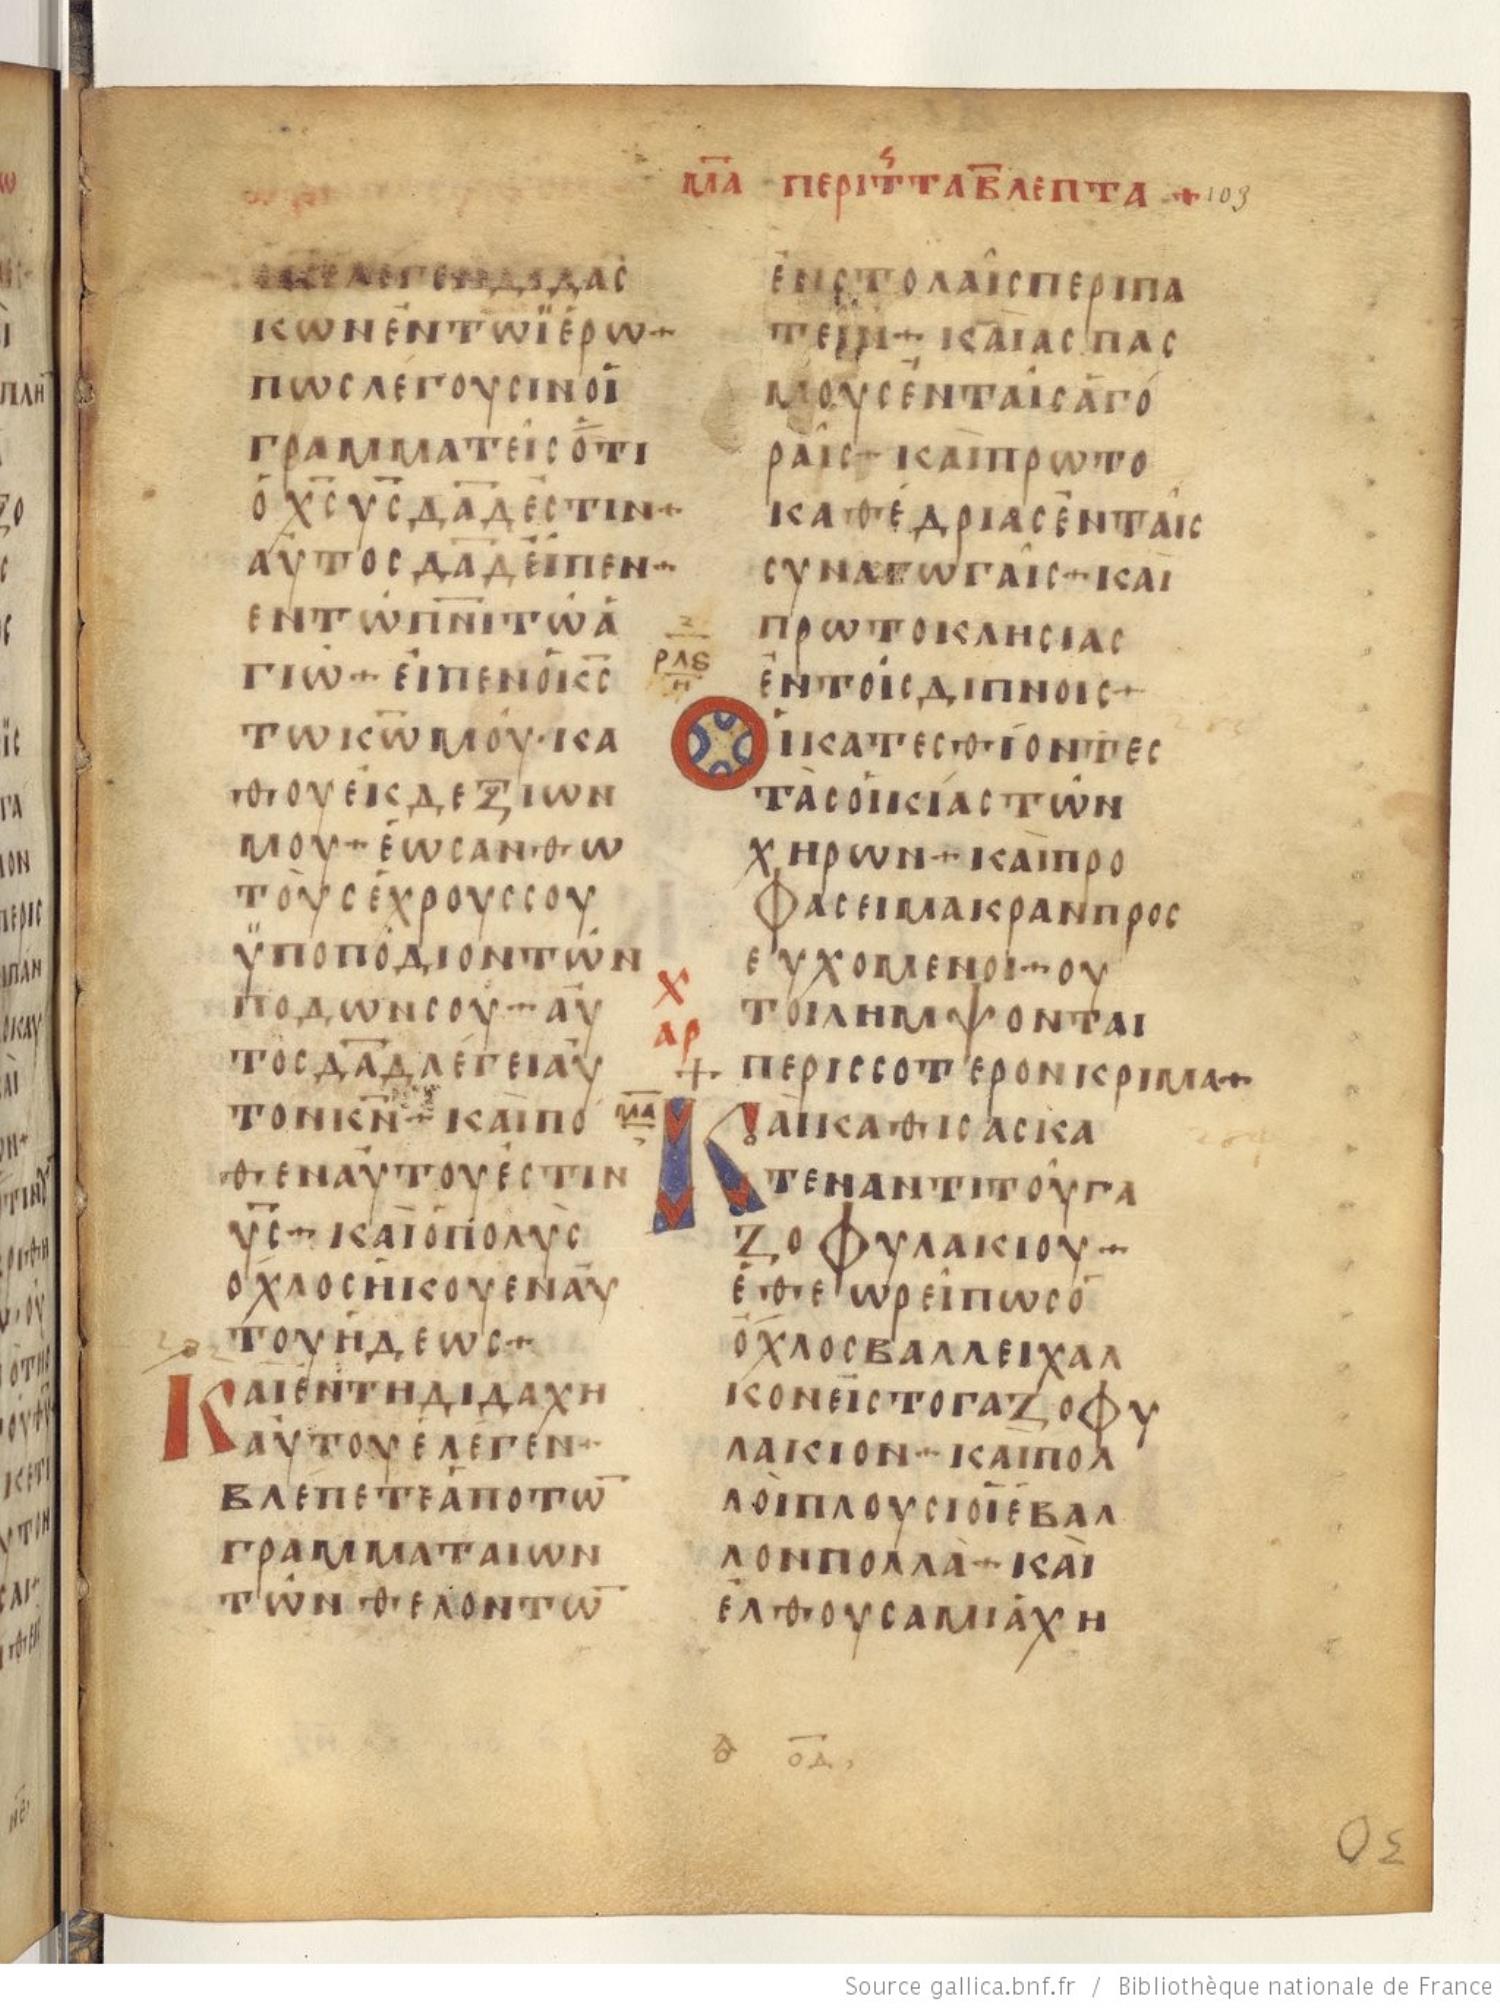 ΜΑ ΠΕΡΙ ΤΑ ΛΕΠΤΑ + 103
ΕΛΕΓΕΝ ΔΙΔΑС
ΚωΝΕΝΤωΪΕΡω+
ΠωСΛΕΓΟΥСΙΝΟΙ
ΓΡΑΜΜΑΤΕΙСΟΤΙ
ΟΧСΥСΔΑΔΕСΤΙΝ+
ΑΥΤΟСΔΑΔΕΙΠΕΝ+
ΕΝΤωΠΝΙΤωΑ
ΓΙω+ΕΙΠΕΝΟΚС
ΤωΚωΜΟΥ·ΚΑ
ΘΟΥΕΚΔΕΞΙωΝ
ΜΟΥ+ΕωСΑΝΘω
ΤΟΥСΕΧΡΟΥССΟΥ
ΫΠΟΠΟΔΙΟΝΤωΝ
ΠΟΔωΝСΟΥ+ΑΥ
ΤΟСΔΑΔΛΕΓΕΙΑΥ
ΤΟΝΚΝ+ΚΑΙΠΟ
ΘΕΝΑΥΤΟΥΕСΤΙΝ
ΥС+ΚΑΙΟΠΟΛΥС
ΟΧΛΟСΗΚΟΥΕΝΑΥ
ΤΟΥΗΔΕωС+
ΚΑΙΕΝΤΗΔΙΔΑΧΗ
ΑΥΤΟΥΕΛΕΓΕΝ+
ΒΛΕΠΕΤΕΑΠΟΤω
ΓΡΑΜΜΑΤΑΙωΝ
ΤωΝΘΕΛΟΝΤω
ΕΝСΤΟΛΑΙСΠΕΡΙΠΑ
ΤΕΙΝ+ΚΑΙΑСΠΑС
ΜΟΥСΕΝΤΑΙСΑΓΟ
ΡΑΙС+ΚΑΙΠΡωΤΟ
ΚΑΘΕΔΡΙΑСΕΝΤΑΙС
СΥΝΑΓωΓΑΙС+ΚΑΙ
ΠΡωΤΟΚΛΗСΙΑС
ΕΝΤΟΙСΔΙΠΝΟΙС+
ΡΛΕ
Η
ΟΙΚΑΤΕСΘΙΟΝΤΕС
ΤΑСΟΙΚΙΑСΤωΝ
ΧΗΡωΝ+ΚΑΙΠΡΟ
ΦΑСΕΙΜΑΚΡΑΝΠΡΟС
ΕΥΧΟΜΕΝΟΙ+ΟΥ
ΤΟΙΛΗΜΨΟΝΤΑΙ
Χ
ΑΡ
+ ΠΕΡΙССΟΤΕΡΟΝΚΡΙΜΑ+
ΜΑ
ΚΑΙΚΑΘΙСΑСΚΑ
ΤΕΝΑΝΤΙΤΟΥΓΑ
ΖΟΦΥΛΑΚΙΟΥ+
ΕΘΕωΡΕΙΠωСΟ
ΟΧΛΟСΒΑΛΛΕΙΧΑΛ
ΚΟΝΕΙСΤΟΓΑΖΟΦΥ
ΛΑΚΙΟΝ+ΚΑΙΠΟΛ
ΛΟΙΠΛΟΥСΙΟΙΕΒΑΛ
ΛΟΝΠΟΛΛΑ+ΚΑΙ
ΕΛΘΟΥСΑΜΙΑΧΗ
ΟΔ
Source gallica.bnf.fr / Bibliothèque nationale de France